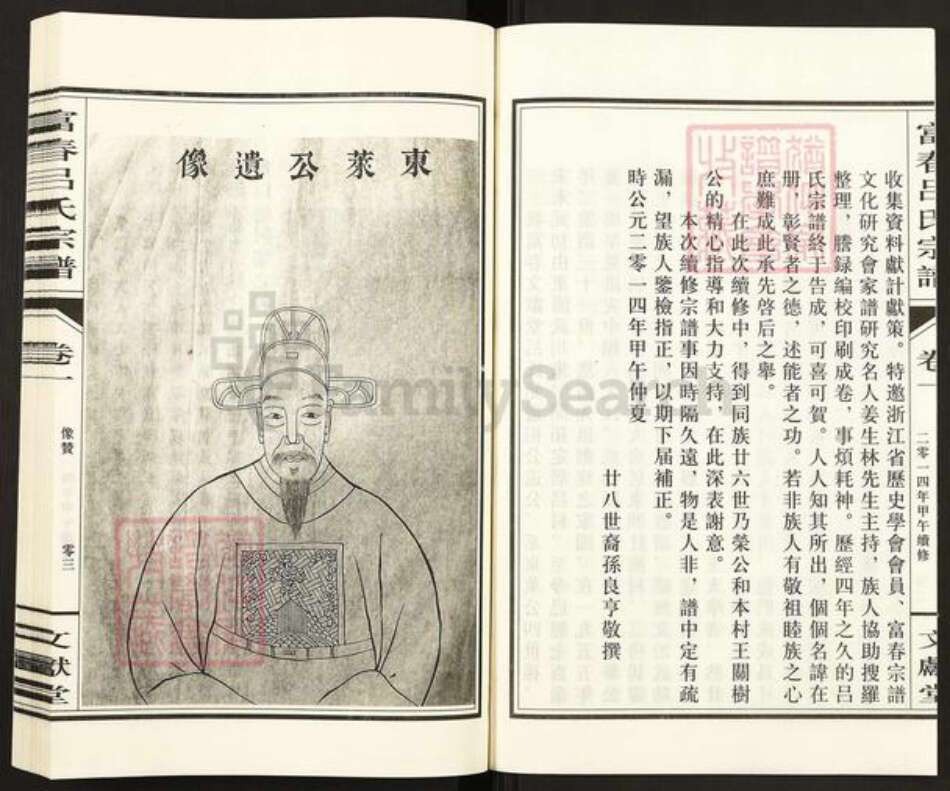 富春呂氏宗譜
卷一
二零一四年甲午續修
文獻堂
收集資料獻計獻策。特邀浙江省歷史學會會員、富春宗譜
文化研究會家譜研究名人姜生林先生主持，族人協助搜羅
整理，謄録編校印刷成卷，事煩耗神。歷經四年之久的吕
氏宗譜終于告成，可喜可賀。人人知其所出，個個名諱在
册，彰賢者之德，述能者之功。若非族人有敬祖睦族之心
庶難成此承先啓后之舉。
在此次續修中，得到同族廿六世乃榮公和本村王關樹
公的精心指導和大力支持，在此深表謝意。
本次續修宗譜事因時隔久遠，物是人非，譜中定有疏
漏，望族人鑒檢指正，以期下届補正。
時公元二零一四年甲午仲夏
廿八世裔孫良亨敬撰
東萊公遺像
富春呂氏宗譜
卷一
像贊
零三
文獻堂
FamilySearch